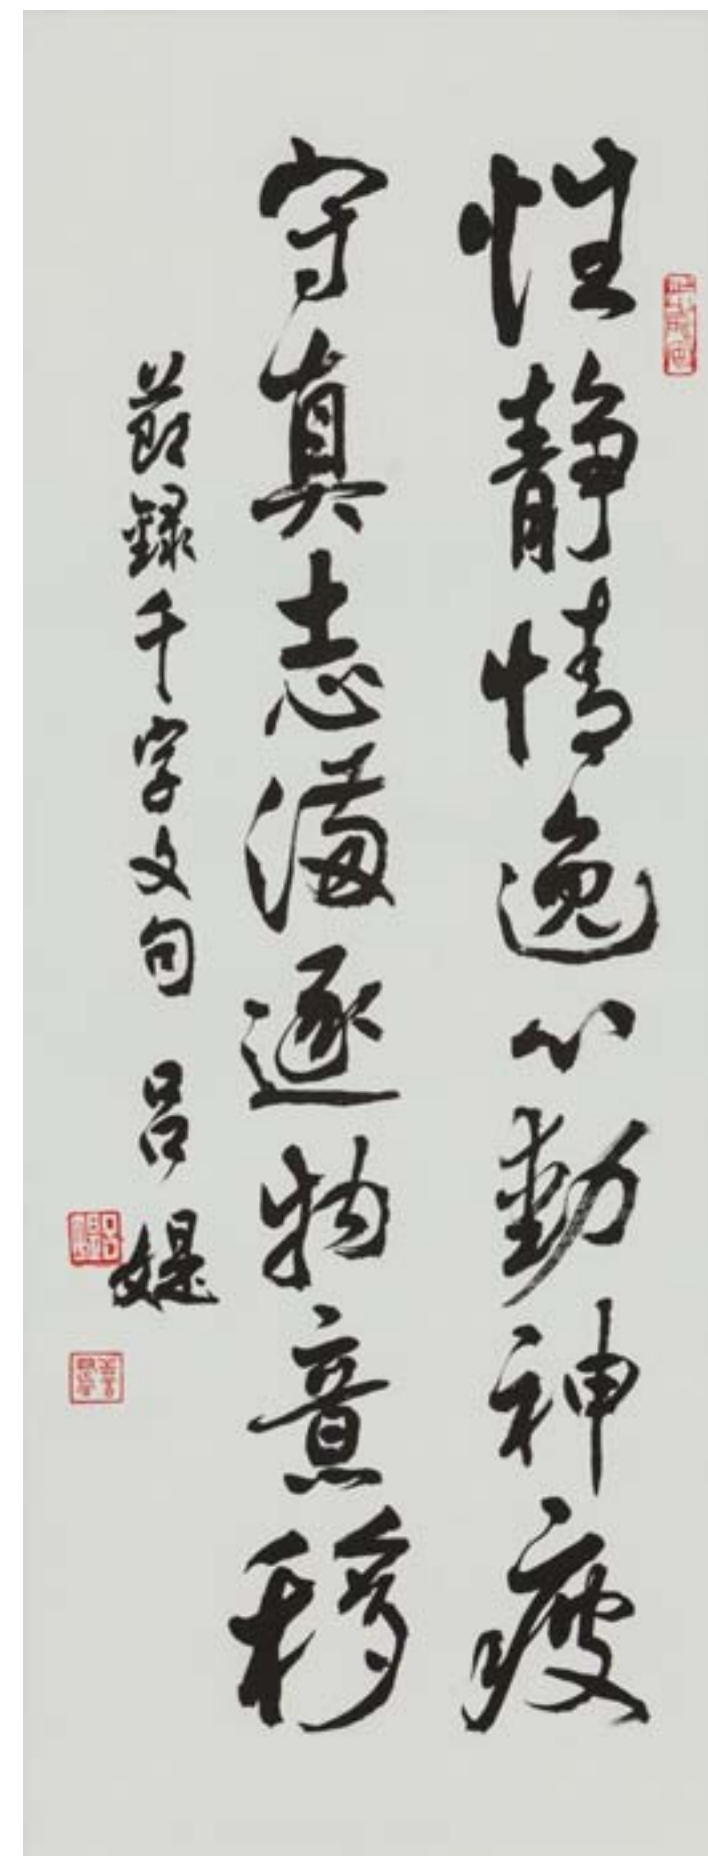 性静情逸心動神疲
守真志滿逐物意移
節録千字文句 吕媞